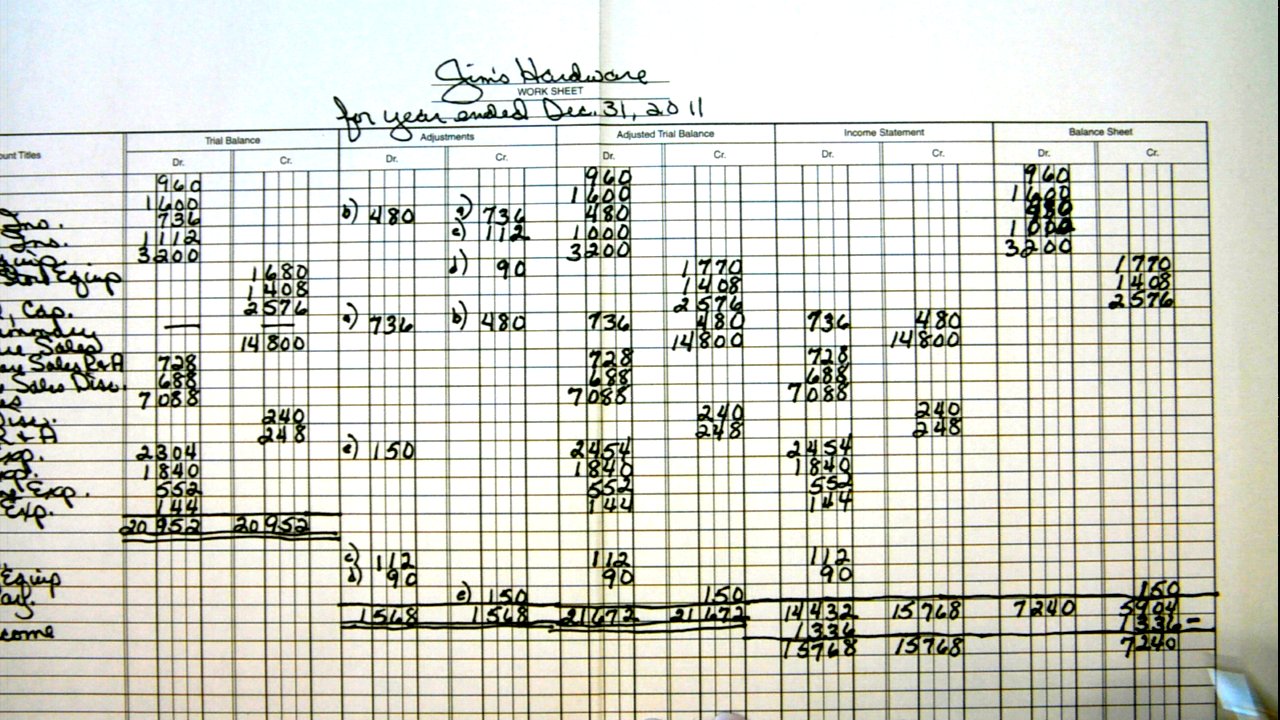 Jim's Hardware
WORK SHEET
for year ended Dec. 31, 2011
Trial Balance Adjustments Adjusted Trial Balance Income Statement Balance Sheet
unt Titles Dr. Cr. Dr. Cr. Dr. Cr. Dr. Cr. Dr. Cr.
960 960 960
1600 1600 1600
Ins. 736 b) 480 a) 736 480 480
Ins. 1112 c) 112 1000 1000
Equip. 3200 3200 3200
Store Equip 1680 d) 90 1770 1770
1408 1408 1408
, Cap. 2576 2576 2576
— — a) 736 b) 480 736 480 736 480
Sales 14800 14800 14800
Sales R+A 728 728 728
Sales Disc. 688 688 688
es 7088 7088 7088
Disc. 240 240 240
R + A 248 248 248
Exp. 2304 e) 150 2454 2454
Exp. 1840 1840 1840
Exp. 552 552 552
Exp. 144 144 144
20952 20952
c) 112 112 112
Equip d) 90 90 90
ay. e) 150 150 150
1568 1568 21672 21672 14432 15768 7240 5904
come 1336 1336 –
15768 15768 7240